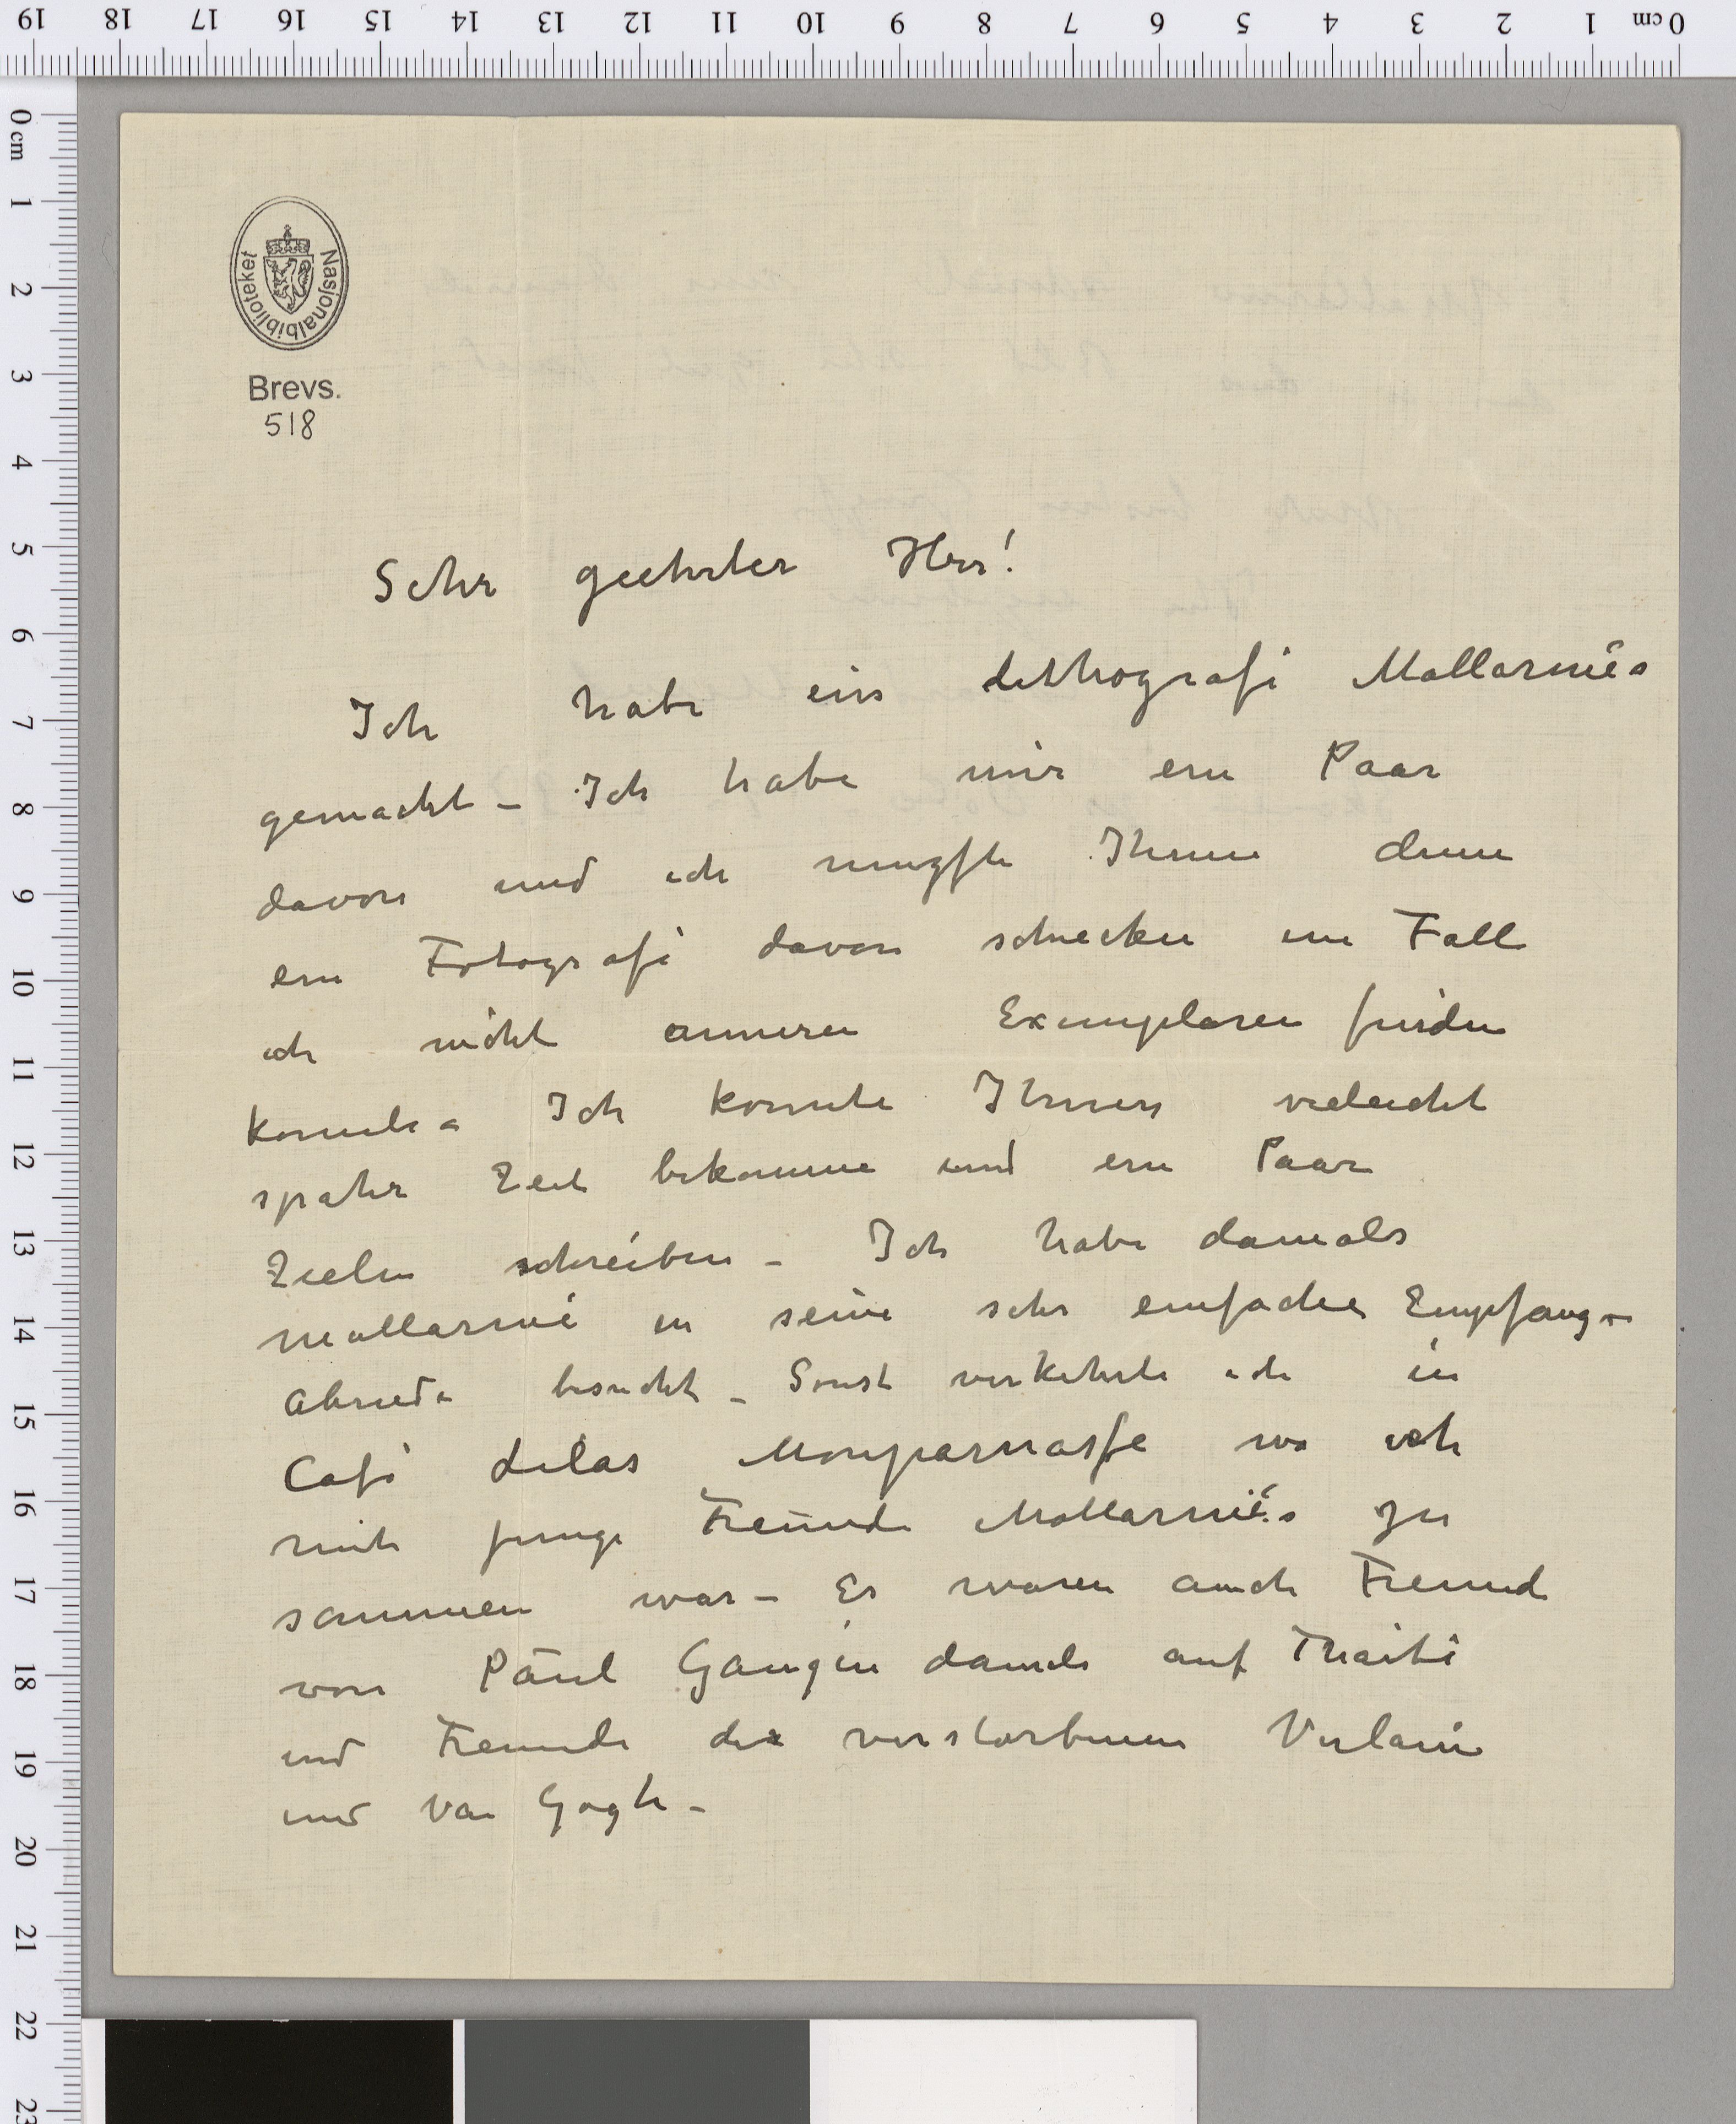 Nasjonalbiblioteket
Brevs.
518
Sehr geehrter Herr!
Ich habe ein Lithografi Mallarmés
gemacht – Ich habe nur ein Paar
davon und ich mußte Ihnen denn
ein Fotografi davon schicken im Fall
ich nicht anneren Exemplaren finden
konnte – Ich konnte Ihnen vieleicht
spater Zeit bekomme und ein Paar
Zielen schreiben – Ich habe damals
Mallarmé in seine sehr einfache Empfang-
Abende besucht – Sonst verkehrte ich in
Café Lilas Monparnasse wo ich
mit junge Freunde Mallarmés zu
sammen war – Es waren auch Freund
von Paul Gaugin damals auf Thaiti
und Freunde der verstorbenen Verlaine
und Van Gogh –